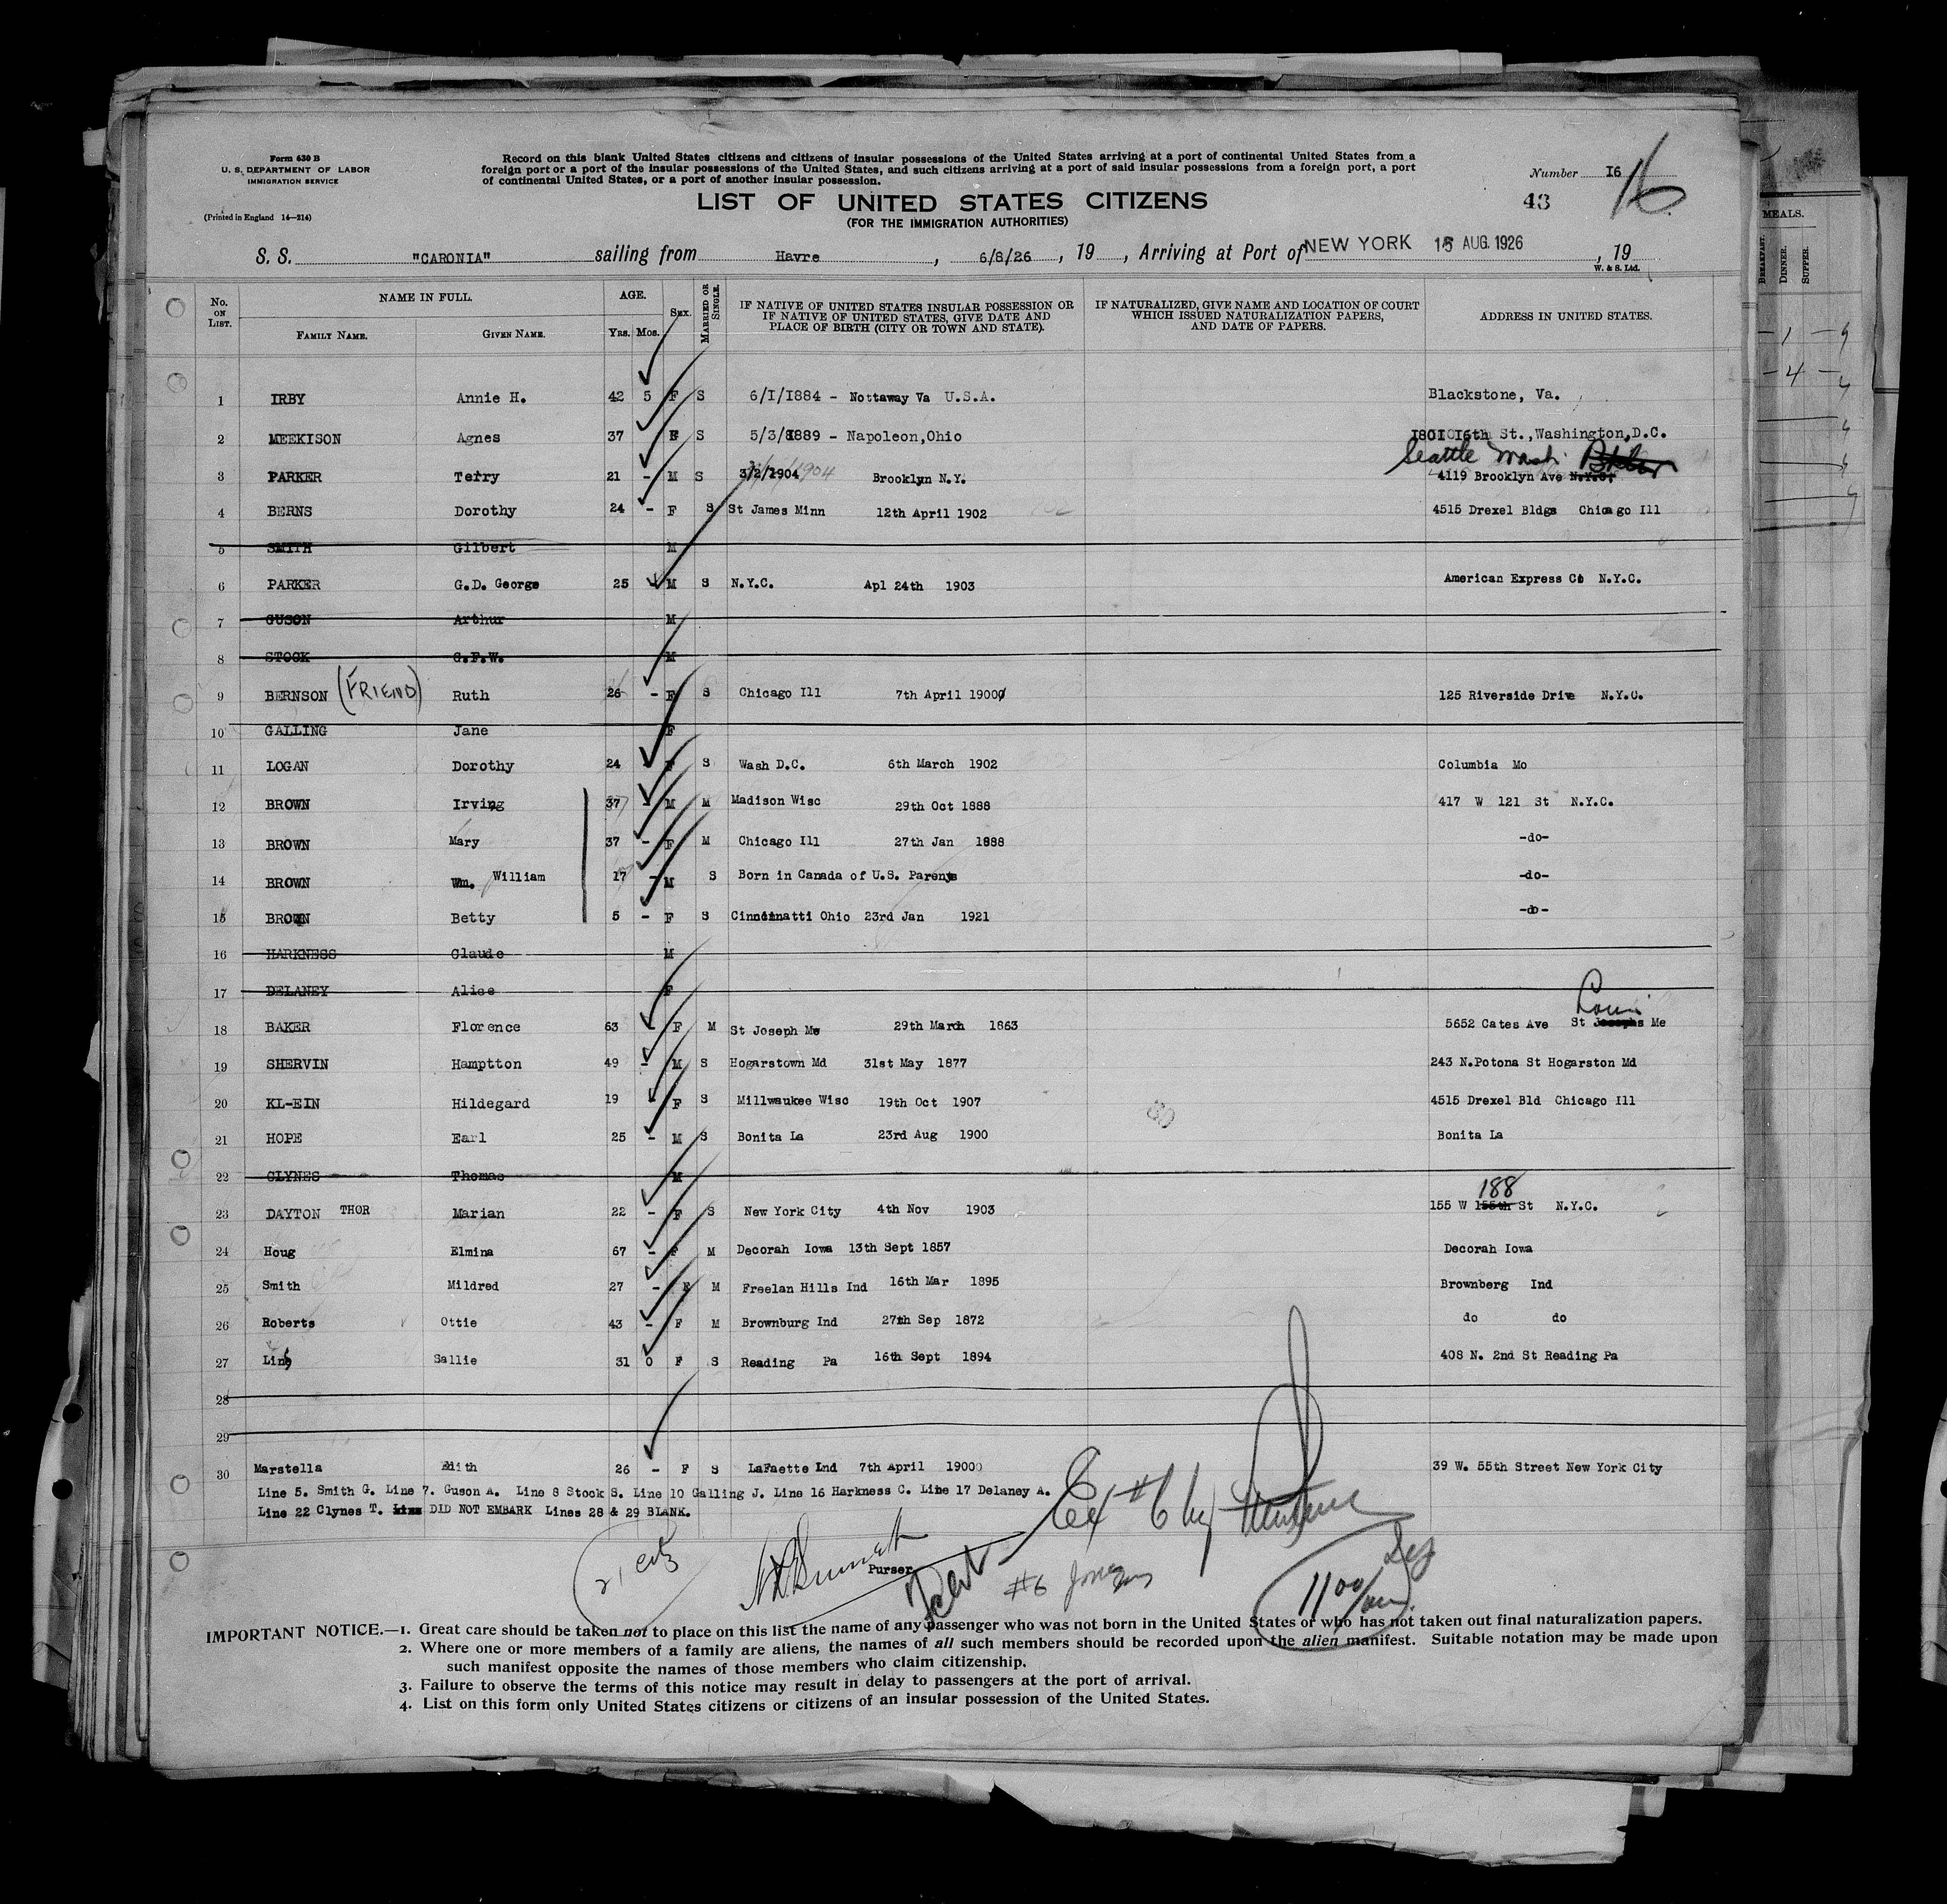 Form 630 B
U. S. DEPARTMENT OF LABOR
IMMIGRATION SERVICE
(Printed in England 14—214)
Record on this blank United States citizens and citizens of insular possessions of the United States arriving at a port of continental United States from a
foreign port or a port of the insular possessions of the United States, and such citizens arriving at a port of said insular possessions from a foreign port, a port
of continental United States, or a port of another insular possession.
Number I6 16
43
LIST OF UNITED STATES CITIZENS
(FOR THE IMMIGRATION AUTHORITIES)
S. S. "CARONIA" sailing from Havre, 6/8/26, 19, Arriving at Port of NEW YORK 15 AUG. 1926, 19
W. & S. Ltd.
No. ON LIST. NAME IN FULL. FAMILY NAME. GIVEN NAME. AGE. Yrs. Mos. Sex. MARRIED OR SINGLE. IF NATIVE OF UNITED STATES INSULAR POSSESSION OR IF NATIVE OF UNITED STATES, GIVE DATE AND PLACE OF BIRTH (CITY OR TOWN AND STATE). IF NATURALIZED, GIVE NAME AND LOCATION OF COURT WHICH ISSUED NATURALIZATION PAPERS, AND DATE OF PAPERS. ADDRESS IN UNITED STATES.
1 IRBY Annie H. 42 5 F S 6/I/I884 - Nottaway Va U.S.A. Blackstone, Va.
2 MEEKISON Agnes 37 F S 5/3/1889 - Napoleon,Ohio I80I I6th St.,Washington,D.C.
Seattle Wash.
3 PARKER Terry 21 - M S 3/2/1904 1904 Brooklyn N.Y. 4119 Brooklyn Ave N.Y.C.
4 BERNS Dorothy 24 - F S St James Minn 12th April 1902 4515 Drexel Bldgs Chicago Ill
5 SMITH Gilbert M
6 PARKER G.D. George 25 M S N.Y.C. Apl 24th 1903 American Express Co N.Y.C.
7 GUSON Arthur M
8 STOCK G.F.W. M
9 BERNSON (FRIEND) Ruth 26 - F S Chicago Ill 7th April 1900 125 Riverside Drive N.Y.C.
10 GALLING Jane F
11 LOGAN Dorothy 24 F S Wash D.C. 6th March 1902 Columbia Mo
12 BROWN Irving 37 - M M Madison Wisc 29th Oct 1888 417 W 121 St N.Y.C.
13 BROWN Mary 37 - F M Chicago Ill 27th Jan 1888 -do-
14 BROWN Wm. William 17 - M S Born in Canada of U.S. Parents -do-
15 BROWN Betty 5 - F S Cincinatti Ohio 23rd Jan 1921 -do-
16 HARKNESS Claude M
17 DELANEY Alice F
Louis
18 BAKER Florence 63 F M St Joseph Me 29th March 1863 5652 Cates Ave St Josephs Me
19 SHERVIN Hamptton 49 - M S Hogarstown Md 31st May 1877 243 N.Potona St Hogarston Md
20 KL-EIN Hildegard 19 F S Millwaukee Wisc 19th Oct 1907 4515 Drexel Bld Chicago Ill
21 HOPE Earl 25 - M S Bonita La 23rd Aug 1900 Bonita La
22 CLYNES Thomas M
188
23 DAYTON THOR Marian 22 - F S New York City 4th Nov 1903 155 W 155th St N.Y.C.
24 Houg Elmina 67 - F M Decorah Iowa 13th Sept 1857 Decorah Iowa
25 Smith Mildred 27 - F M Freelan Hills Ind 16th Mar 1895 Brownberg Ind
26 Roberts Ottie 43 - F M Brownburg Ind 27th Sep 1872 do do
27 Sallie 31 0 F S Reading Pa 16th Sept 1894 408 N. 2nd St Reading Pa
28
29
30 Marstella Edith 26 - F S LaFaette Ind 7th April 1900 39 W. 55th Street New York City
Line 5. Smith G. Line 7. Guson A. Line 8 Stock S. Line 10 Galling J. Line 16 Harkness C. Line 17 Delaney A.
Line 22 Clynes T. Line DID NOT EMBARK Lines 28 & 29 BLANK.
Purser
#6
IMPORTANT NOTICE.—1. Great care should be taken not to place on this list the name of any passenger who was not born in the United States or who has not taken out final naturalization papers.
2. Where one or more members of a family are aliens, the names of all such members should be recorded upon the alien manifest. Suitable notation may be made upon
such manifest opposite the names of those members who claim citizenship.
3. Failure to observe the terms of this notice may result in delay to passengers at the port of arrival.
4. List on this form only United States citizens or citizens of an insular possession of the United States.
MEALS.
BREAKFAST. DINNER. SUPPER.